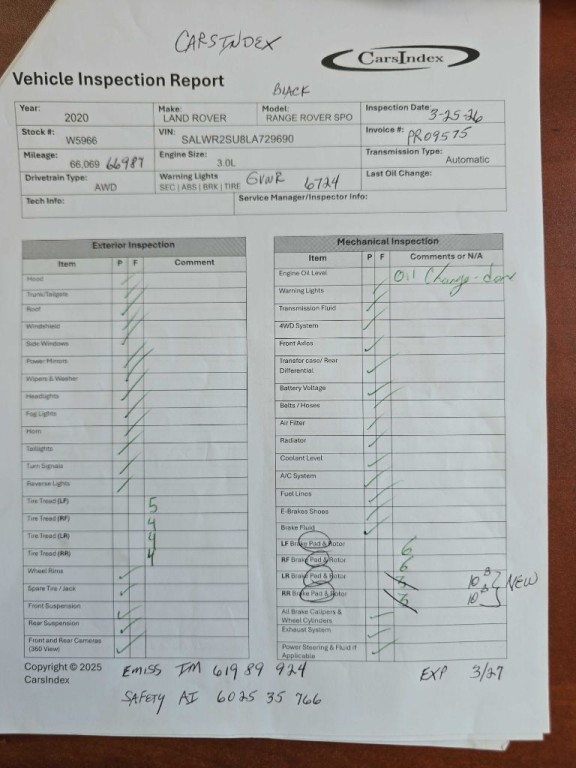 CARSINDEX
CarsIndex
Vehicle Inspection Report
BLACK
Year: 2020 Make: LAND ROVER Model: RANGE ROVER SPO Inspection Date: 3-25-26
Stock #: W5966 VIN: SALWR2SU8LA729690 Invoice #: PR09575
Mileage: 66,069 66987 Engine Size: 3.0L Transmission Type: Automatic
Drivetrain Type: AWD Warning Lights SEC | ABS | BRK | TIRE GVWR 6724 Last Oil Change:
Tech Info: Service Manager/Inspector Info:
Exterior Inspection
Item P F Comment
Hood
Trunk/Tailgate
Roof
Windshield
Side Windows
Power Mirrors
Wipers & Washer
Headlights
Fog Lights
Horn
Taillights
Turn Signals
Reverse Lights
Tire Tread (LF) 5
Tire Tread (RF) 4
Tire Tread (LR) 4
Tire Tread (RR) 4
Wheel Rims
Spare Tire / Jack
Front Suspension
Rear Suspension
Front and Rear Cameras
(360 View)
Mechanical Inspection
Item P F Comments or N/A
Engine Oil Level Oil Change - don
Warning Lights
Transmission Fluid
4WD System
Front Axles
Transfer case/ Rear
Differential
Battery Voltage
Belts / Hoses
Air Filter
Radiator
Coolant Level
A/C System
Fuel Lines
E-Brakes Shoes
Brake Fluid
LF Brake Pad & Rotor 6
RF Brake Pad & Rotor 6
LR Brake Pad & Rotor 10
RR Brake Pad & Rotor 10
NEW
All Brake Calipers &
Wheel Cylinders
Exhaust System
Power Steering & Fluid if
Applicable
Copyright © 2025
CarsIndex
EMISS IM 619 89 924 EXP 3/27
SAFETY AI 6025 35 766